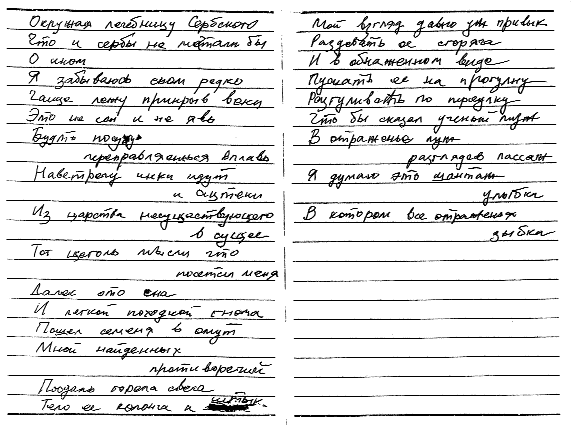 Окружая лечебницу Сербского
Что и сербы не мечтали бы
О ином
Я забываюсь сном редко
Чаще лежу прикрыв веки
Это не сон и не явь
Будто
переправляешься вплавь
Навстречу инки идут
и ацтеки
Из царства несуществующего
в сущее
Тот щеголь мысли что
посетил меня
Далек это сна
И легкой походкой гнома
Пошел семеня в омут
Мной найденных
противоречий
Поодаль горела свеча
Тело ее колонча и штык.
Мой взгляд давно уж привык
Раздевать ее сгоряча
И в обнаженном виде
Пускать ее на прогулку
Разгуливать по переулку
Что бы сказал ученый муж
В отраженье луж
разглядев пассаж
Я думаю это шантаж
улыбка
В котором все отраженья
зыбка